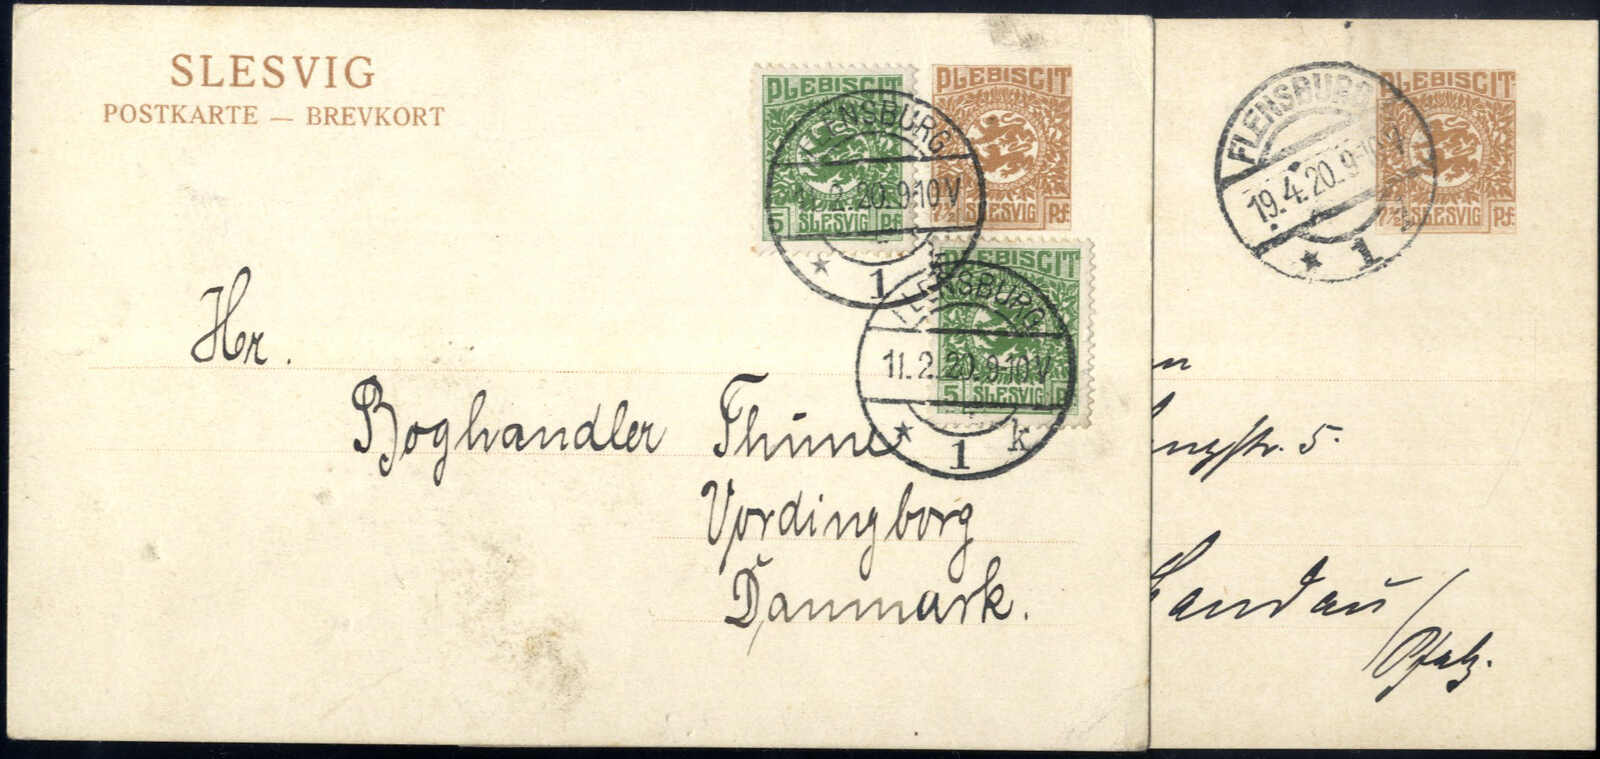 SLESVIG
POSTKARTE — BREVKORT
PLEBISCIT
5 SLESVIG Pf.
PLEBISCIT
7½ SLESVIG Pf.
FLENSBURG
11.2.20.9-10V
* 1
PLEBISCIT
5 SLESVIG P
FLENSBURG
11.2.20.9-10V
* 1 k
Hr.
Boghandler Thune
Vordingborg
Danmark.
PLEBISCIT
7½ SLESVIG Pf.
FLENSBURG
19.4.20.9-10V
* 1
n
str. 5.
Landau/
Pfalz.